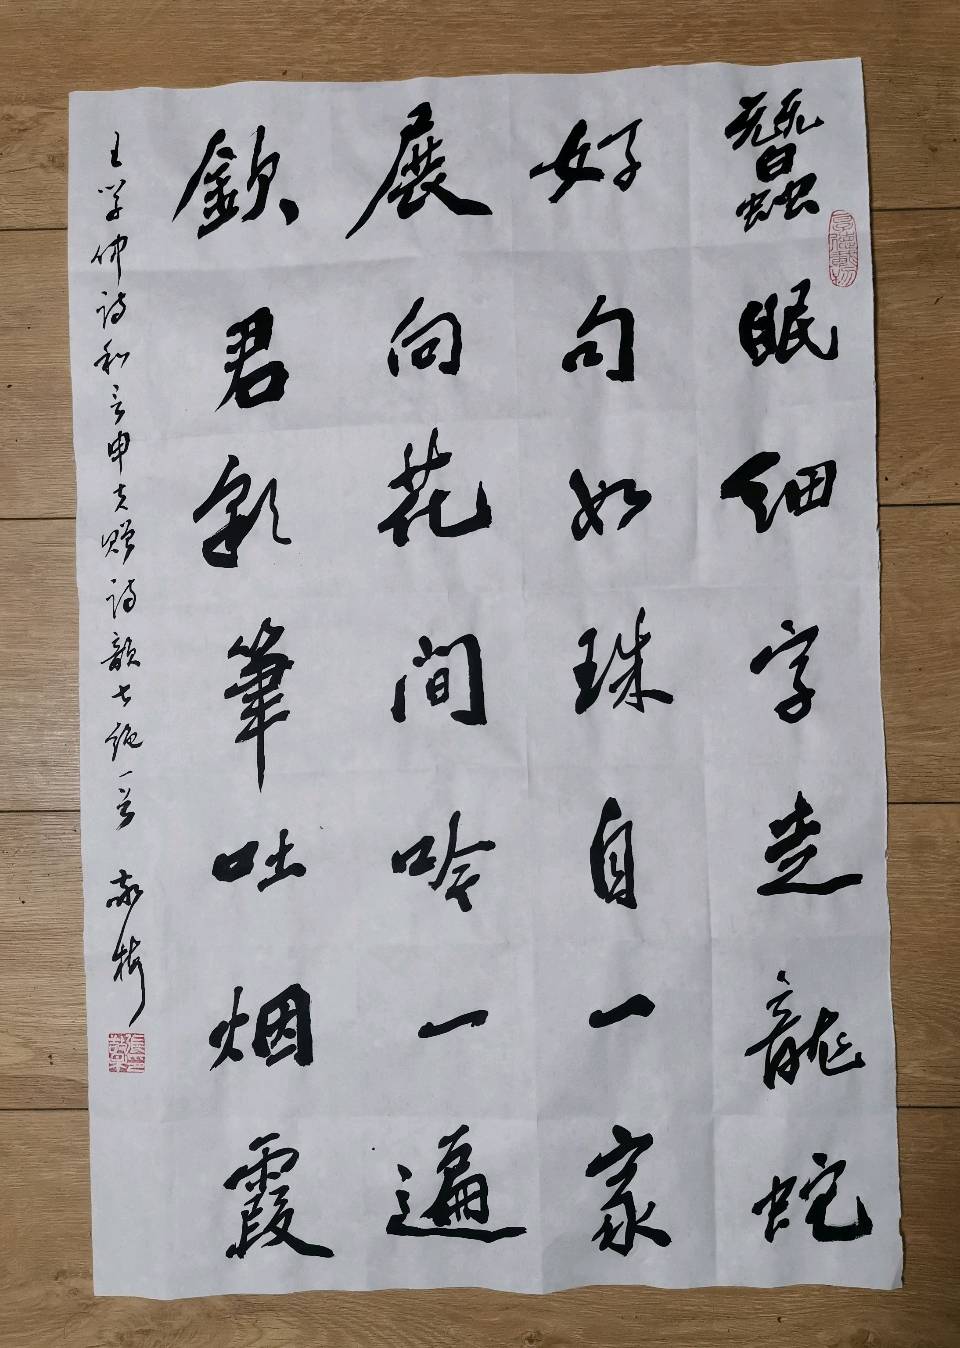 蠶眠细字走龍蛇
好句如珠自一家
展向花间吟一遍
欽君彩筆吐烟霞
王学仲诗和言申夫赠诗韻七绝一首
厚德載物